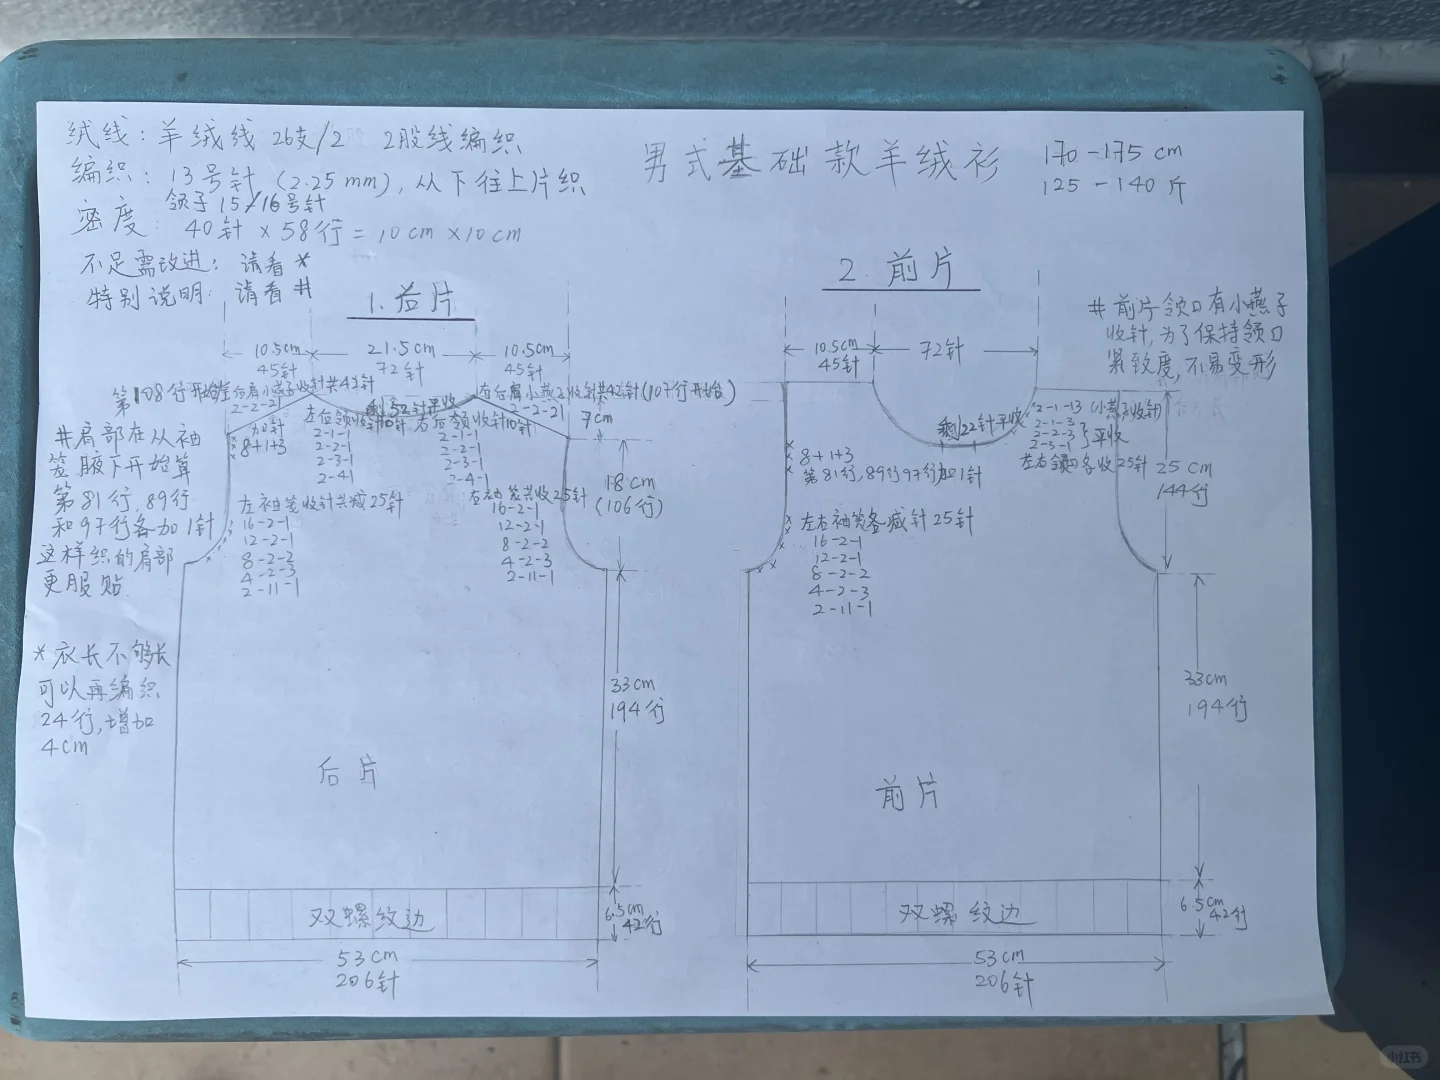 绒线：羊绒线 26支/2 2股线编织
编织：13号针 (2.25mm)，从下往上片织
领子 15/16号针
密度：40针 × 58行 = 10cm × 10cm
不足需改进：请看 *
特别说明：请看 #
男式基础款羊绒衫
170-175 cm
125-140 斤
1. 后片
10.5cm
45针
21.5cm
72针
10.5cm
45针
第108行开始
后肩小燕子收针共42针
2-2-21
加针
8+1+3
左后领收针10针
2-1-1
2-2-1
2-3-1
2-4-1
剩52针平收
右后领收针10针
2-1-1
2-2-1
2-3-1
2-4-1
右后肩小燕子收针共42针(107行开始)
2-2-21
7cm
18cm
(106行)
#肩部在从袖
笼腋下开始算
第81行，89行
和97行各加1针
这样织的肩部
更服贴
左袖笼收针共减25针
16-2-1
12-2-1
8-2-2
4-2-3
2-11-1
右袖笼共收25针
16-2-1
12-2-1
8-2-2
4-2-3
2-11-1
* 衣长不够长
可以再编织
24行，增加
4cm
后片
33cm
194行
双螺纹边
6.5cm
42行
53cm
206针
2. 前片
10.5cm
45针
72针
# 前片领口有小燕子
收针，为了保持领口
紧致度，不易变形
剩22针平收
2-1-13 (小燕子收针)
2-1-3
2-2-3
2-3-1
平收
左右领口各收25针
8+1+3
第81行，89行97行加1针
左右袖笼各减针25针
16-2-1
12-2-1
8-2-2
4-2-3
2-11-1
25cm
144行
前片
33cm
194行
双螺纹边
6.5cm
42行
53cm
206针
小红书